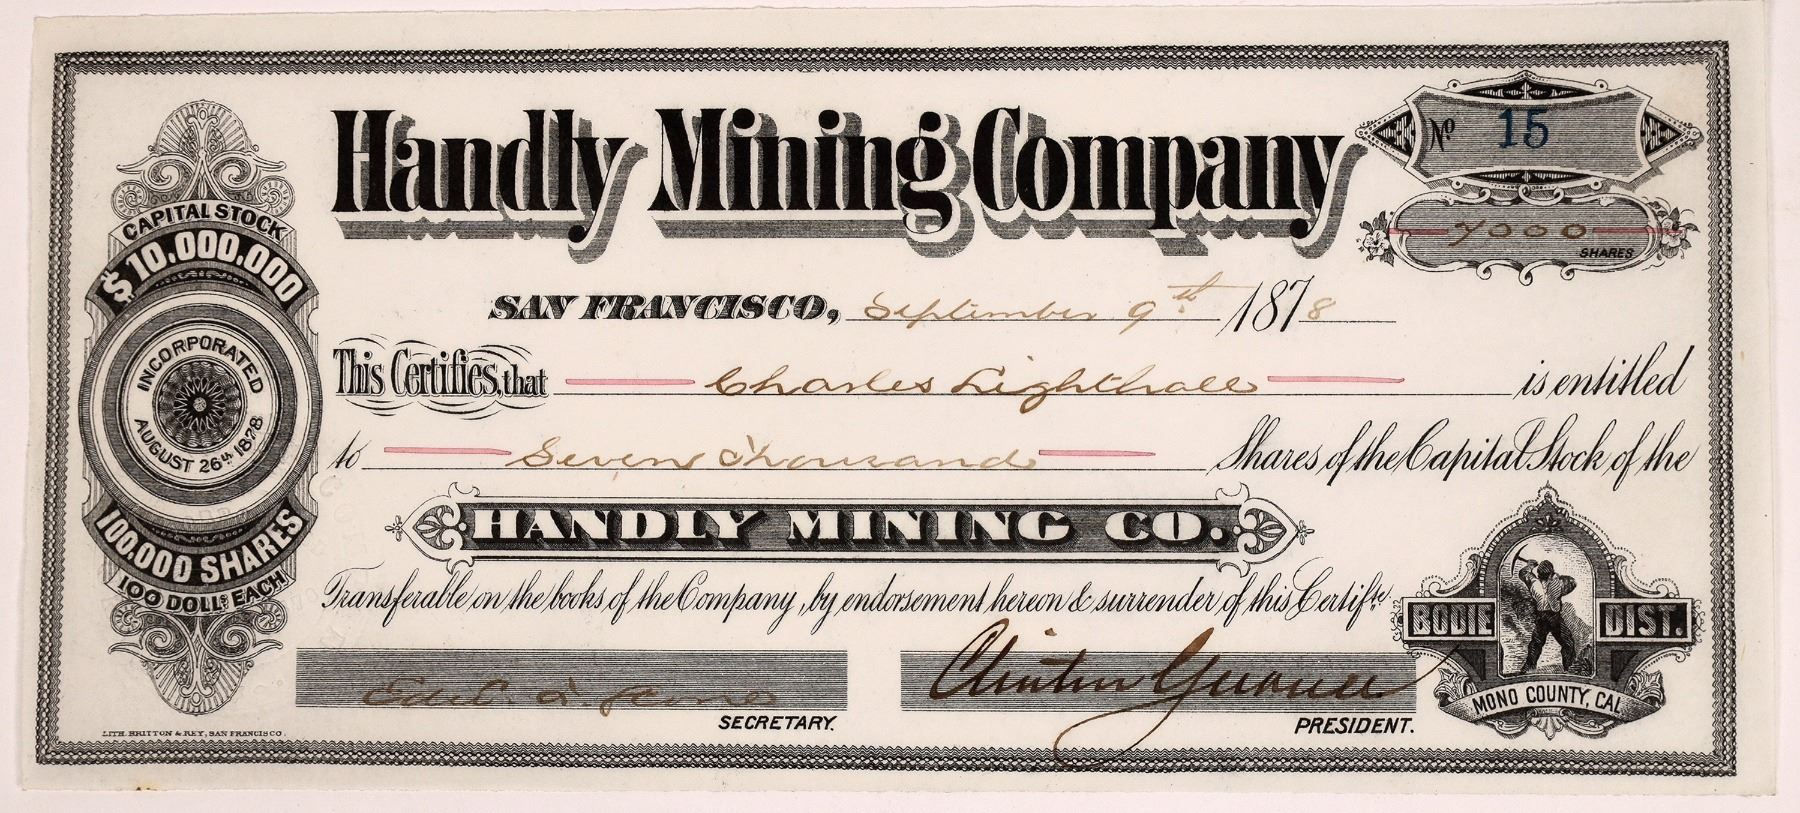 Handly Mining Company
No 15
7000
SHARES
CAPITAL STOCK
$10.000.000
INCORPORATED
AUGUST 26th 1878
100.000 SHARES
100 DOLLS EACH
SAN FRANCISCO, September 9th 1878
This Certifies, that Charles Lighthall is entitled
to Seven Thousand Shares of the Capital Stock of the
HANDLY MINING CO.
Transferable on the books of the Company, by endorsement hereon & surrender of this Certifte.
BODIE DIST.
MONO COUNTY, CAL
Clinton
SECRETARY.
PRESIDENT.
LITH. BRITTON & REY, SAN FRANCISCO.